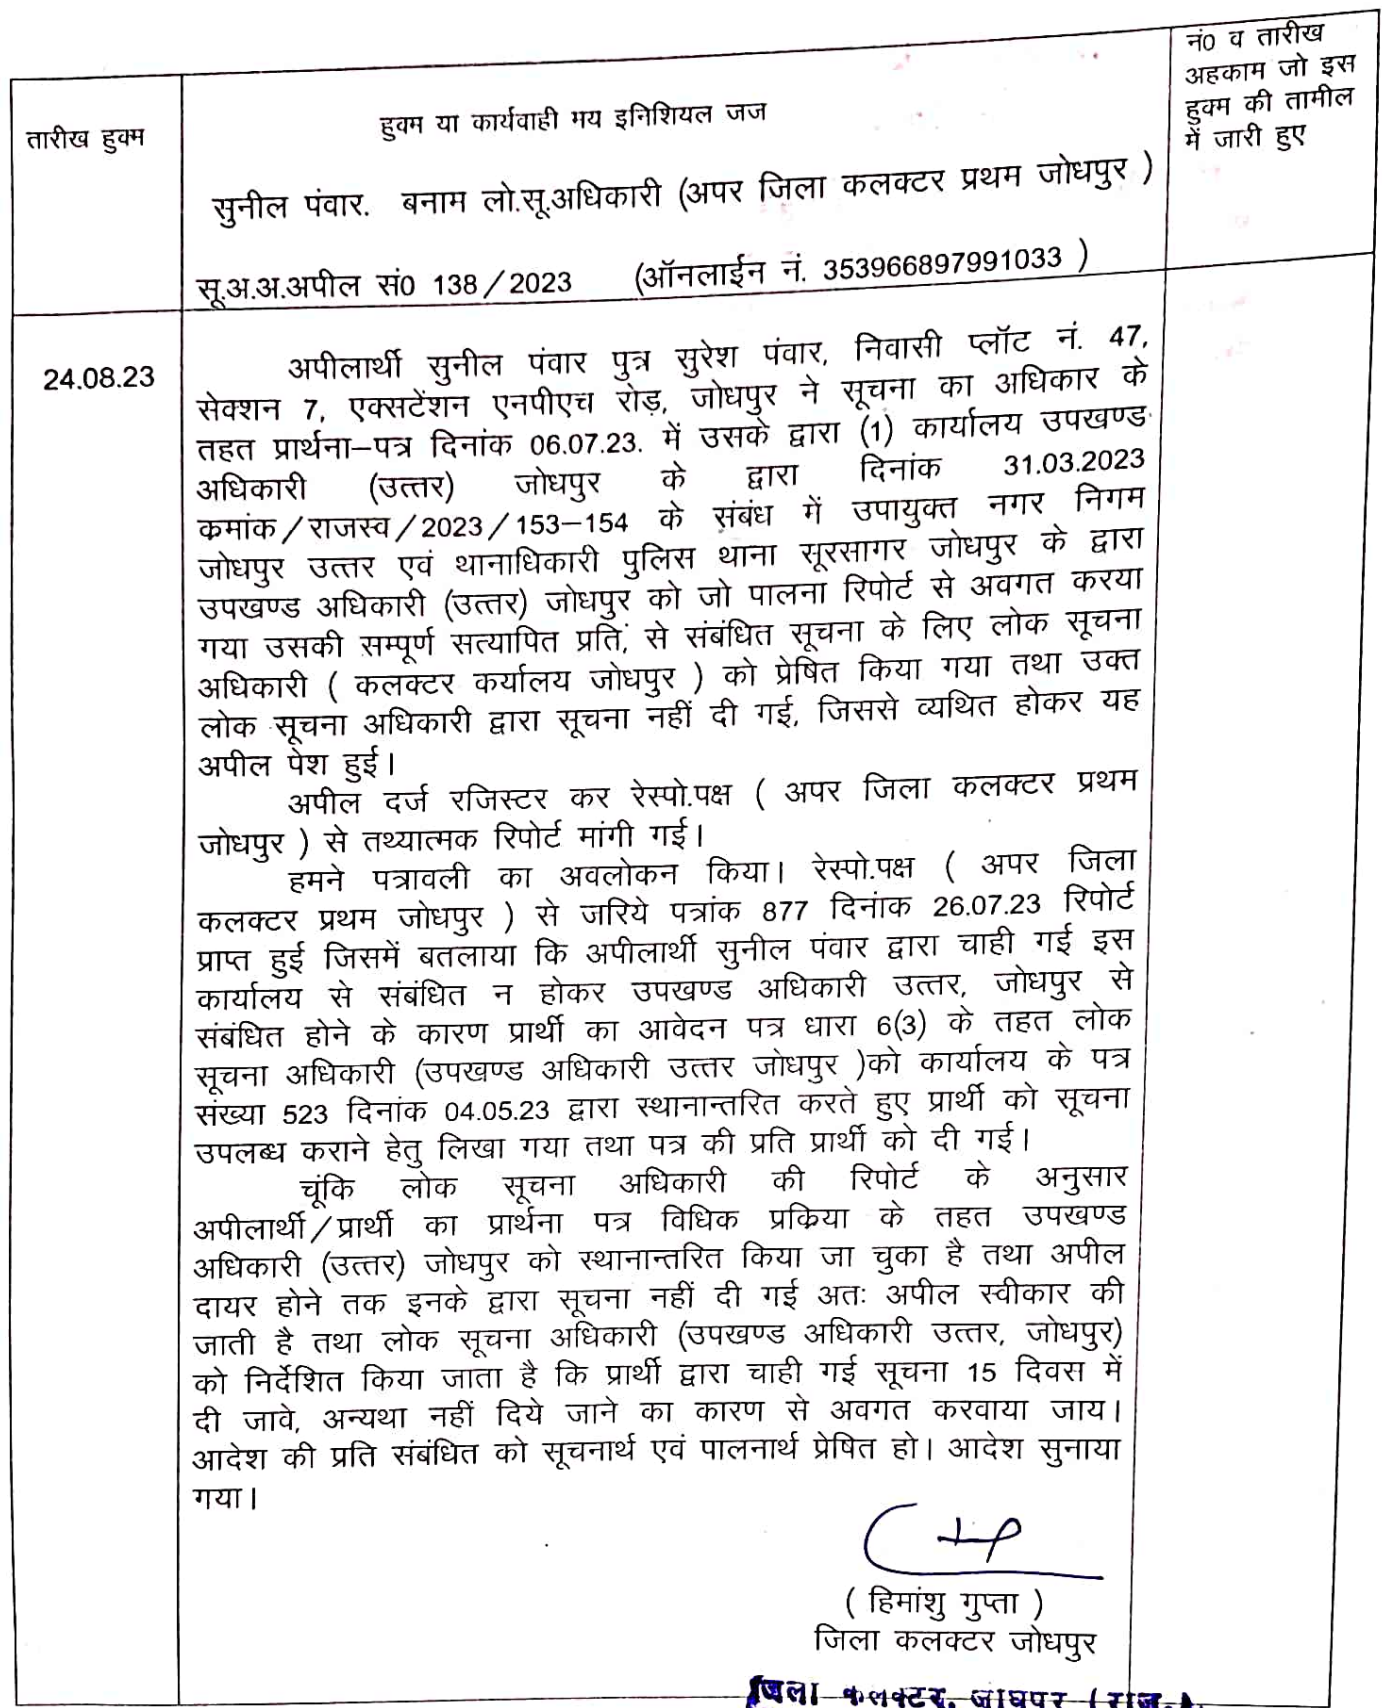 तारीख हुक्म
हुक्म या कार्यवाही मय इनिशियल जज
नं0 व तारीख
अहकाम जो इस
हुक्म की तामील
में जारी हुए
सुनील पंवार. बनाम लो.सू.अधिकारी (अपर जिला कलक्टर प्रथम जोधपुर )
सू.अ.अ.अपील सं0 138/2023 (ऑनलाईन नं. 353966897991033 )
24.08.23
अपीलार्थी सुनील पंवार पुत्र सुरेश पंवार, निवासी प्लॉट नं. 47,
सेक्शन 7, एक्सटेंशन एनपीएच रोड़, जोधपुर ने सूचना का अधिकार के
तहत प्रार्थना–पत्र दिनांक 06.07.23. में उसके द्वारा (1) कार्यालय उपखण्ड
अधिकारी (उत्तर) जोधपुर के द्वारा दिनांक 31.03.2023
कमांक/राजस्व/2023/153–154 के संबंध में उपायुक्त नगर निगम
जोधपुर उत्तर एवं थानाधिकारी पुलिस थाना सूरसागर जोधपुर के द्वारा
उपखण्ड अधिकारी (उत्तर) जोधपुर को जो पालना रिपोर्ट से अवगत करया
गया उसकी सम्पूर्ण सत्यापित प्रति, से संबंधित सूचना के लिए लोक सूचना
अधिकारी ( कलक्टर कर्यालय जोधपुर ) को प्रेषित किया गया तथा उक्त
लोक सूचना अधिकारी द्वारा सूचना नहीं दी गई, जिससे व्यथित होकर यह
अपील पेश हुई।
अपील दर्ज रजिस्टर कर रेस्पो.पक्ष ( अपर जिला कलक्टर प्रथम
जोधपुर ) से तथ्यात्मक रिपोर्ट मांगी गई।
हमने पत्रावली का अवलोकन किया। रेस्पो.पक्ष ( अपर जिला
कलक्टर प्रथम जोधपुर ) से जरिये पत्रांक 877 दिनांक 26.07.23 रिपोर्ट
प्राप्त हुई जिसमें बतलाया कि अपीलार्थी सुनील पंवार द्वारा चाही गई इस
कार्यालय से संबंधित न होकर उपखण्ड अधिकारी उत्तर, जोधपुर से
संबंधित होने के कारण प्रार्थी का आवेदन पत्र धारा 6(3) के तहत लोक
सूचना अधिकारी (उपखण्ड अधिकारी उत्तर जोधपुर )को कार्यालय के पत्र
संख्या 523 दिनांक 04.05.23 द्वारा स्थानान्तरित करते हुए प्रार्थी को सूचना
उपलब्ध कराने हेतु लिखा गया तथा पत्र की प्रति प्रार्थी को दी गई।
चूंकि लोक सूचना अधिकारी की रिपोर्ट के अनुसार
अपीलार्थी/प्रार्थी का प्रार्थना पत्र विधिक प्रकिया के तहत उपखण्ड
अधिकारी (उत्तर) जोधपुर को स्थानान्तरित किया जा चुका है तथा अपील
दायर होने तक इनके द्वारा सूचना नहीं दी गई अतः अपील स्वीकार की
जाती है तथा लोक सूचना अधिकारी (उपखण्ड अधिकारी उत्तर, जोधपुर)
को निर्देशित किया जाता है कि प्रार्थी द्वारा चाही गई सूचना 15 दिवस में
दी जावे, अन्यथा नहीं दिये जाने का कारण से अवगत करवाया जाय।
आदेश की प्रति संबंधित को सूचनार्थ एवं पालनार्थ प्रेषित हो। आदेश सुनाया
गया।
( हिमांशु गुप्ता )
जिला कलक्टर जोधपुर
जिला कलक्टर, जोधपुर (राज.)